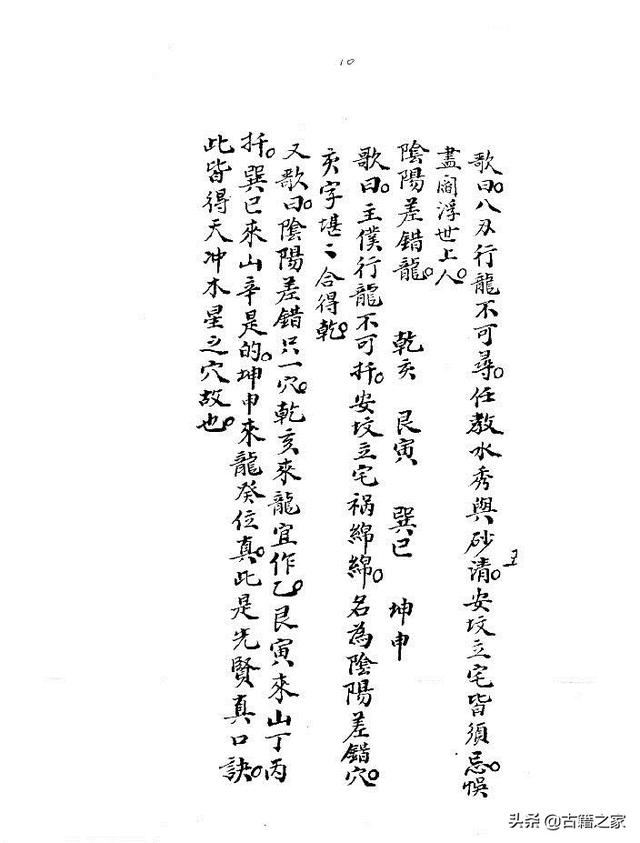 10
歌曰。八刃行龍不可尋。任教水秀與砂清。安坟立宅皆須忌。悞
盡閻浮世上人。
陰陽差錯龍。 乾亥 艮寅 巽巳 坤申
歌曰。主僕行龍不可扦。安坟立宅祸綿綿。名為陰陽差錯穴。
亥字堪〻合得乾。
又歌曰。陰陽差錯只一穴。乾亥來龍宜作乙。艮寅來山丁丙
扦。巽巳來山辛是的。坤申來龍癸位真。此是先賢真口訣。
此皆得天冲木星之穴故也。
头条 @古籍之家